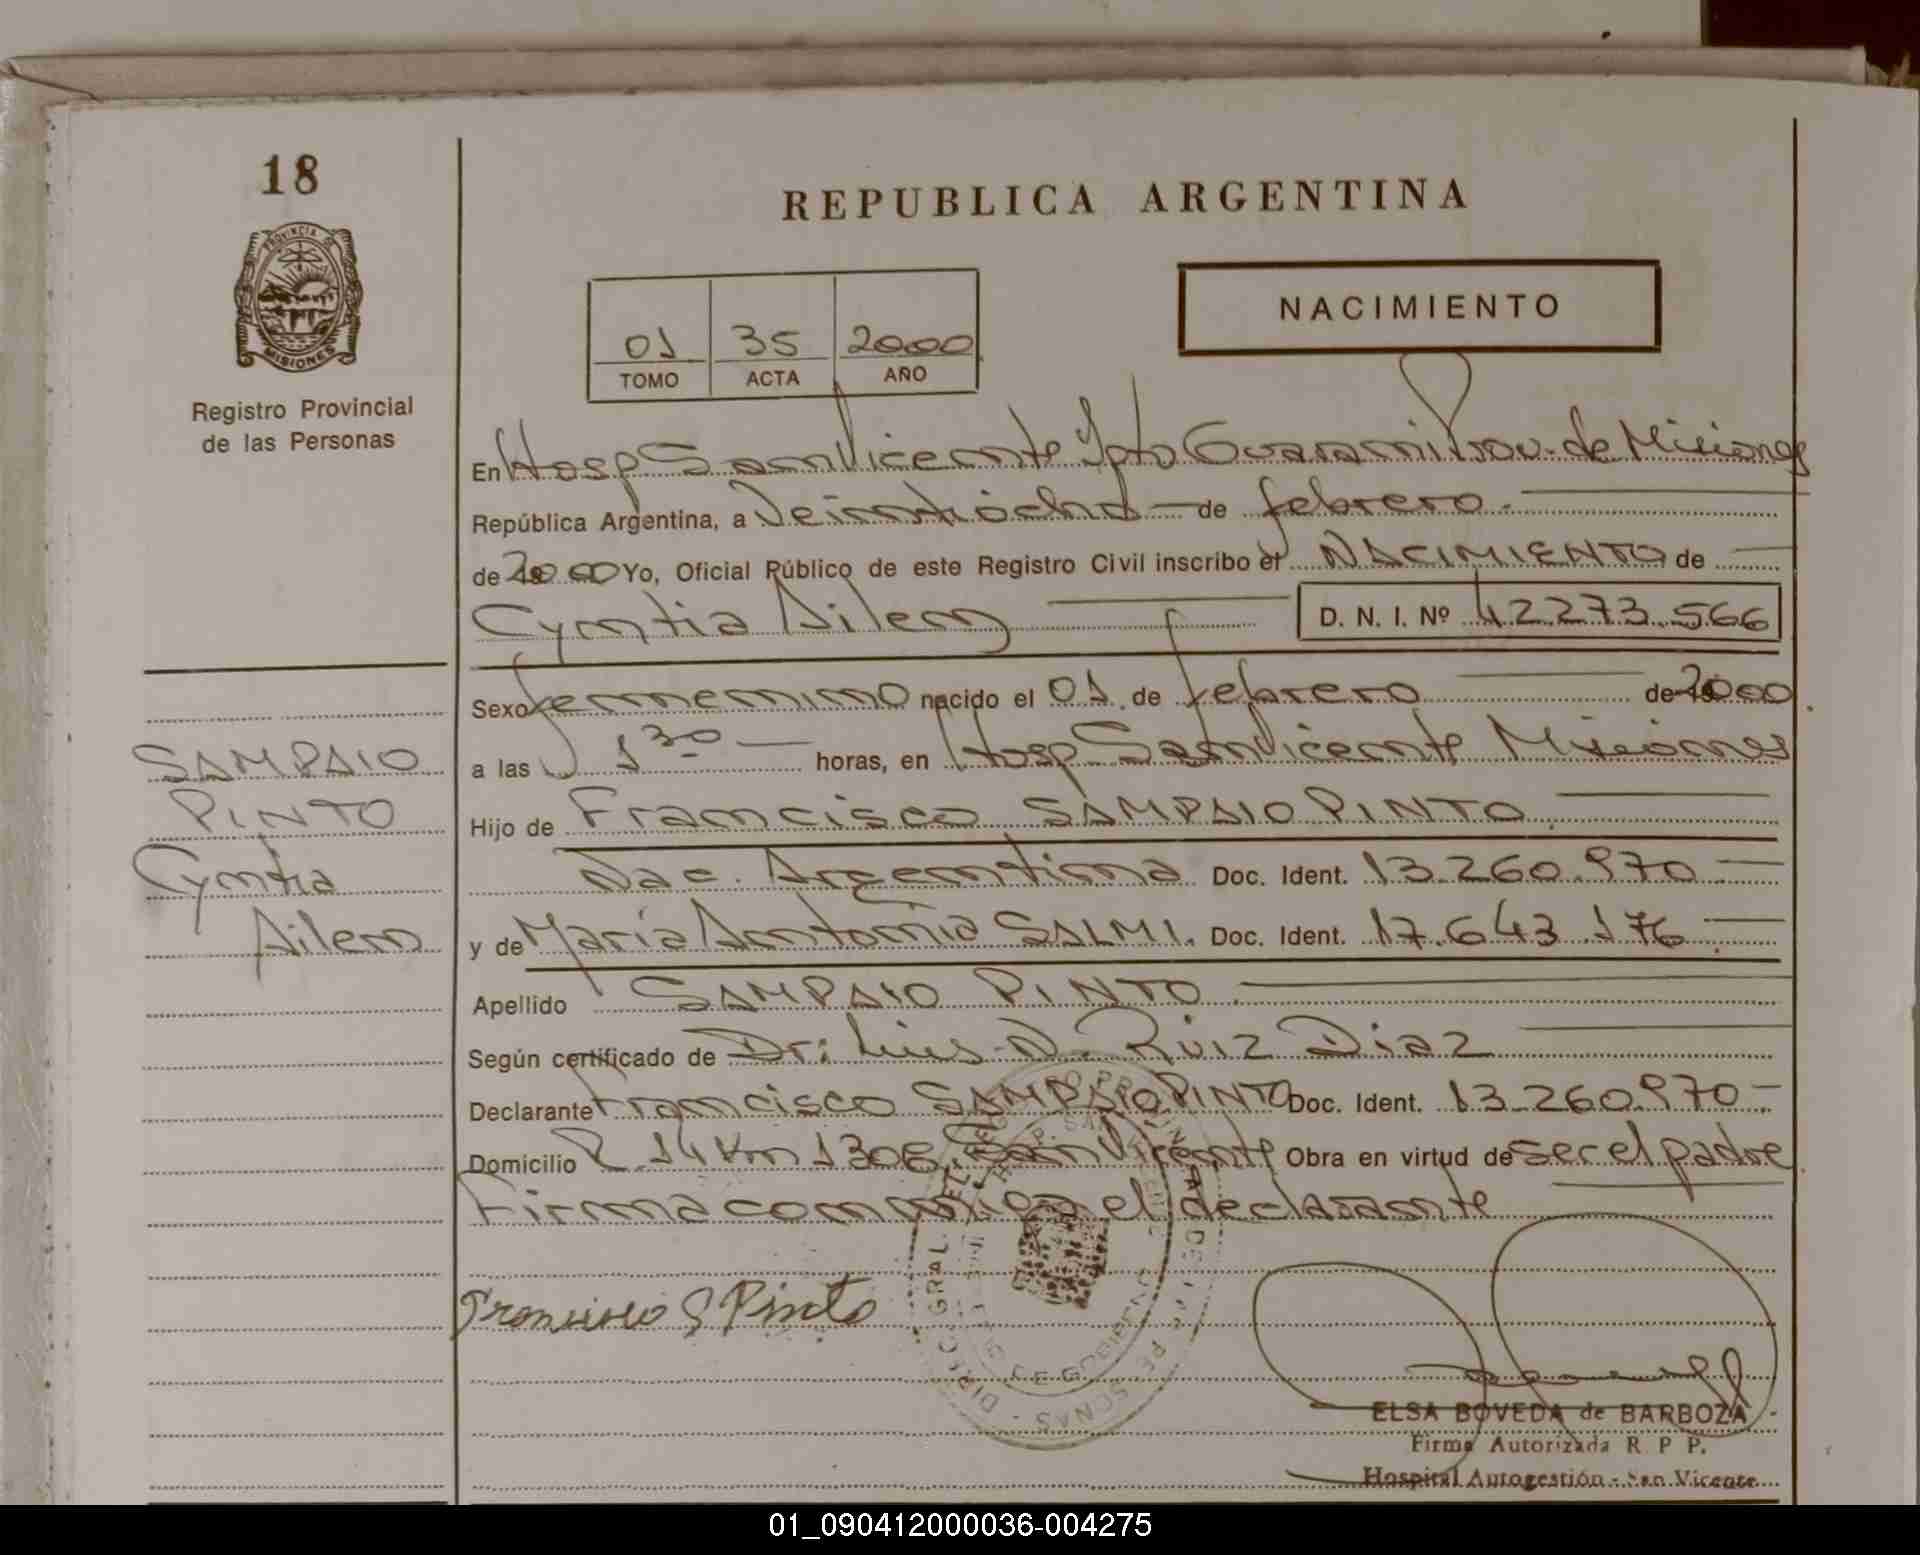 18
PROVINCIA DE
MISIONES
Registro Provincial
de las Personas
REPUBLICA ARGENTINA
01 35 2000
TOMO ACTA AÑO
NACIMIENTO
En Hosp San Vicente Dpto Guarani Prov. de Misiones
República Argentina, a Veintiocho de febrero.
de 2000 Yo, Oficial Público de este Registro Civil inscribo el NACIMIENTO de
Cyntia Ailen D. N. I. Nº 42273.566
Sexo femenino nacido el 01 de febrero de 2000
a las 1 30 horas, en Hosp San Vicente Misiones
Hijo de Francisco SAMPAIO PINTO
Nac. Argentina Doc. Ident. 13.260.970
y de María Antonia SALMI. Doc. Ident. 17.643.176
Apellido SAMPAIO PINTO
Según certificado de Dr: Luis N. Ruiz Diaz
Declarante Francisco SAMPAIO PINTO Doc. Ident. 13.260.970
Domicilio R. 14 Km 1306, San Vicente Obra en virtud de ser el padre
Firma conmigo el declarante
SAMPAIO
PINTO
Cyntia
Ailen
Francisco S Pinto
ELSA BOVEDA de BARBOZA
Firma Autorizada R P P.
Hospital Autogestión - San Vicente
01_090412000036-004275